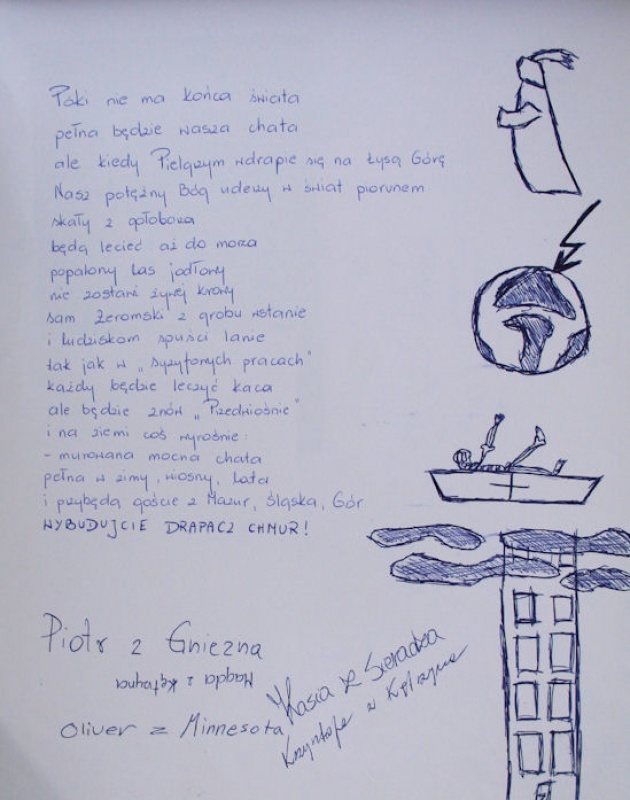 Póki nie ma końca świata
pełna będzie wasza chata
ale kiedy Pielgrzym wdrapie się na Łysą Górę
Nasz potężny Bóg uderzy w świat piorunem
skały z gołoborza
będą lecieć aż do morza
popalony las jodłowy
nie zostanie żywej krowy
sam Żeromski z grobu wstanie
i ludziskom spuści lanie
tak jak w „Syzyfowych pracach"
każdy będzie leczyć kaca
ale będzie znów „Przedwiośnie"
i na ziemi coś wyrośnie:
- murowana mocna chata
pełna w zimy, wiosny, lata
i przybędą goście z Mazur, Śląska, Gór
WYBUDUJCIE DRAPACZ CHMUR!
Piotr z Gniezna
Magda z Kętrzyna
Kasia ze Sieradza
Oliver z Minnesota
Krzysztof z